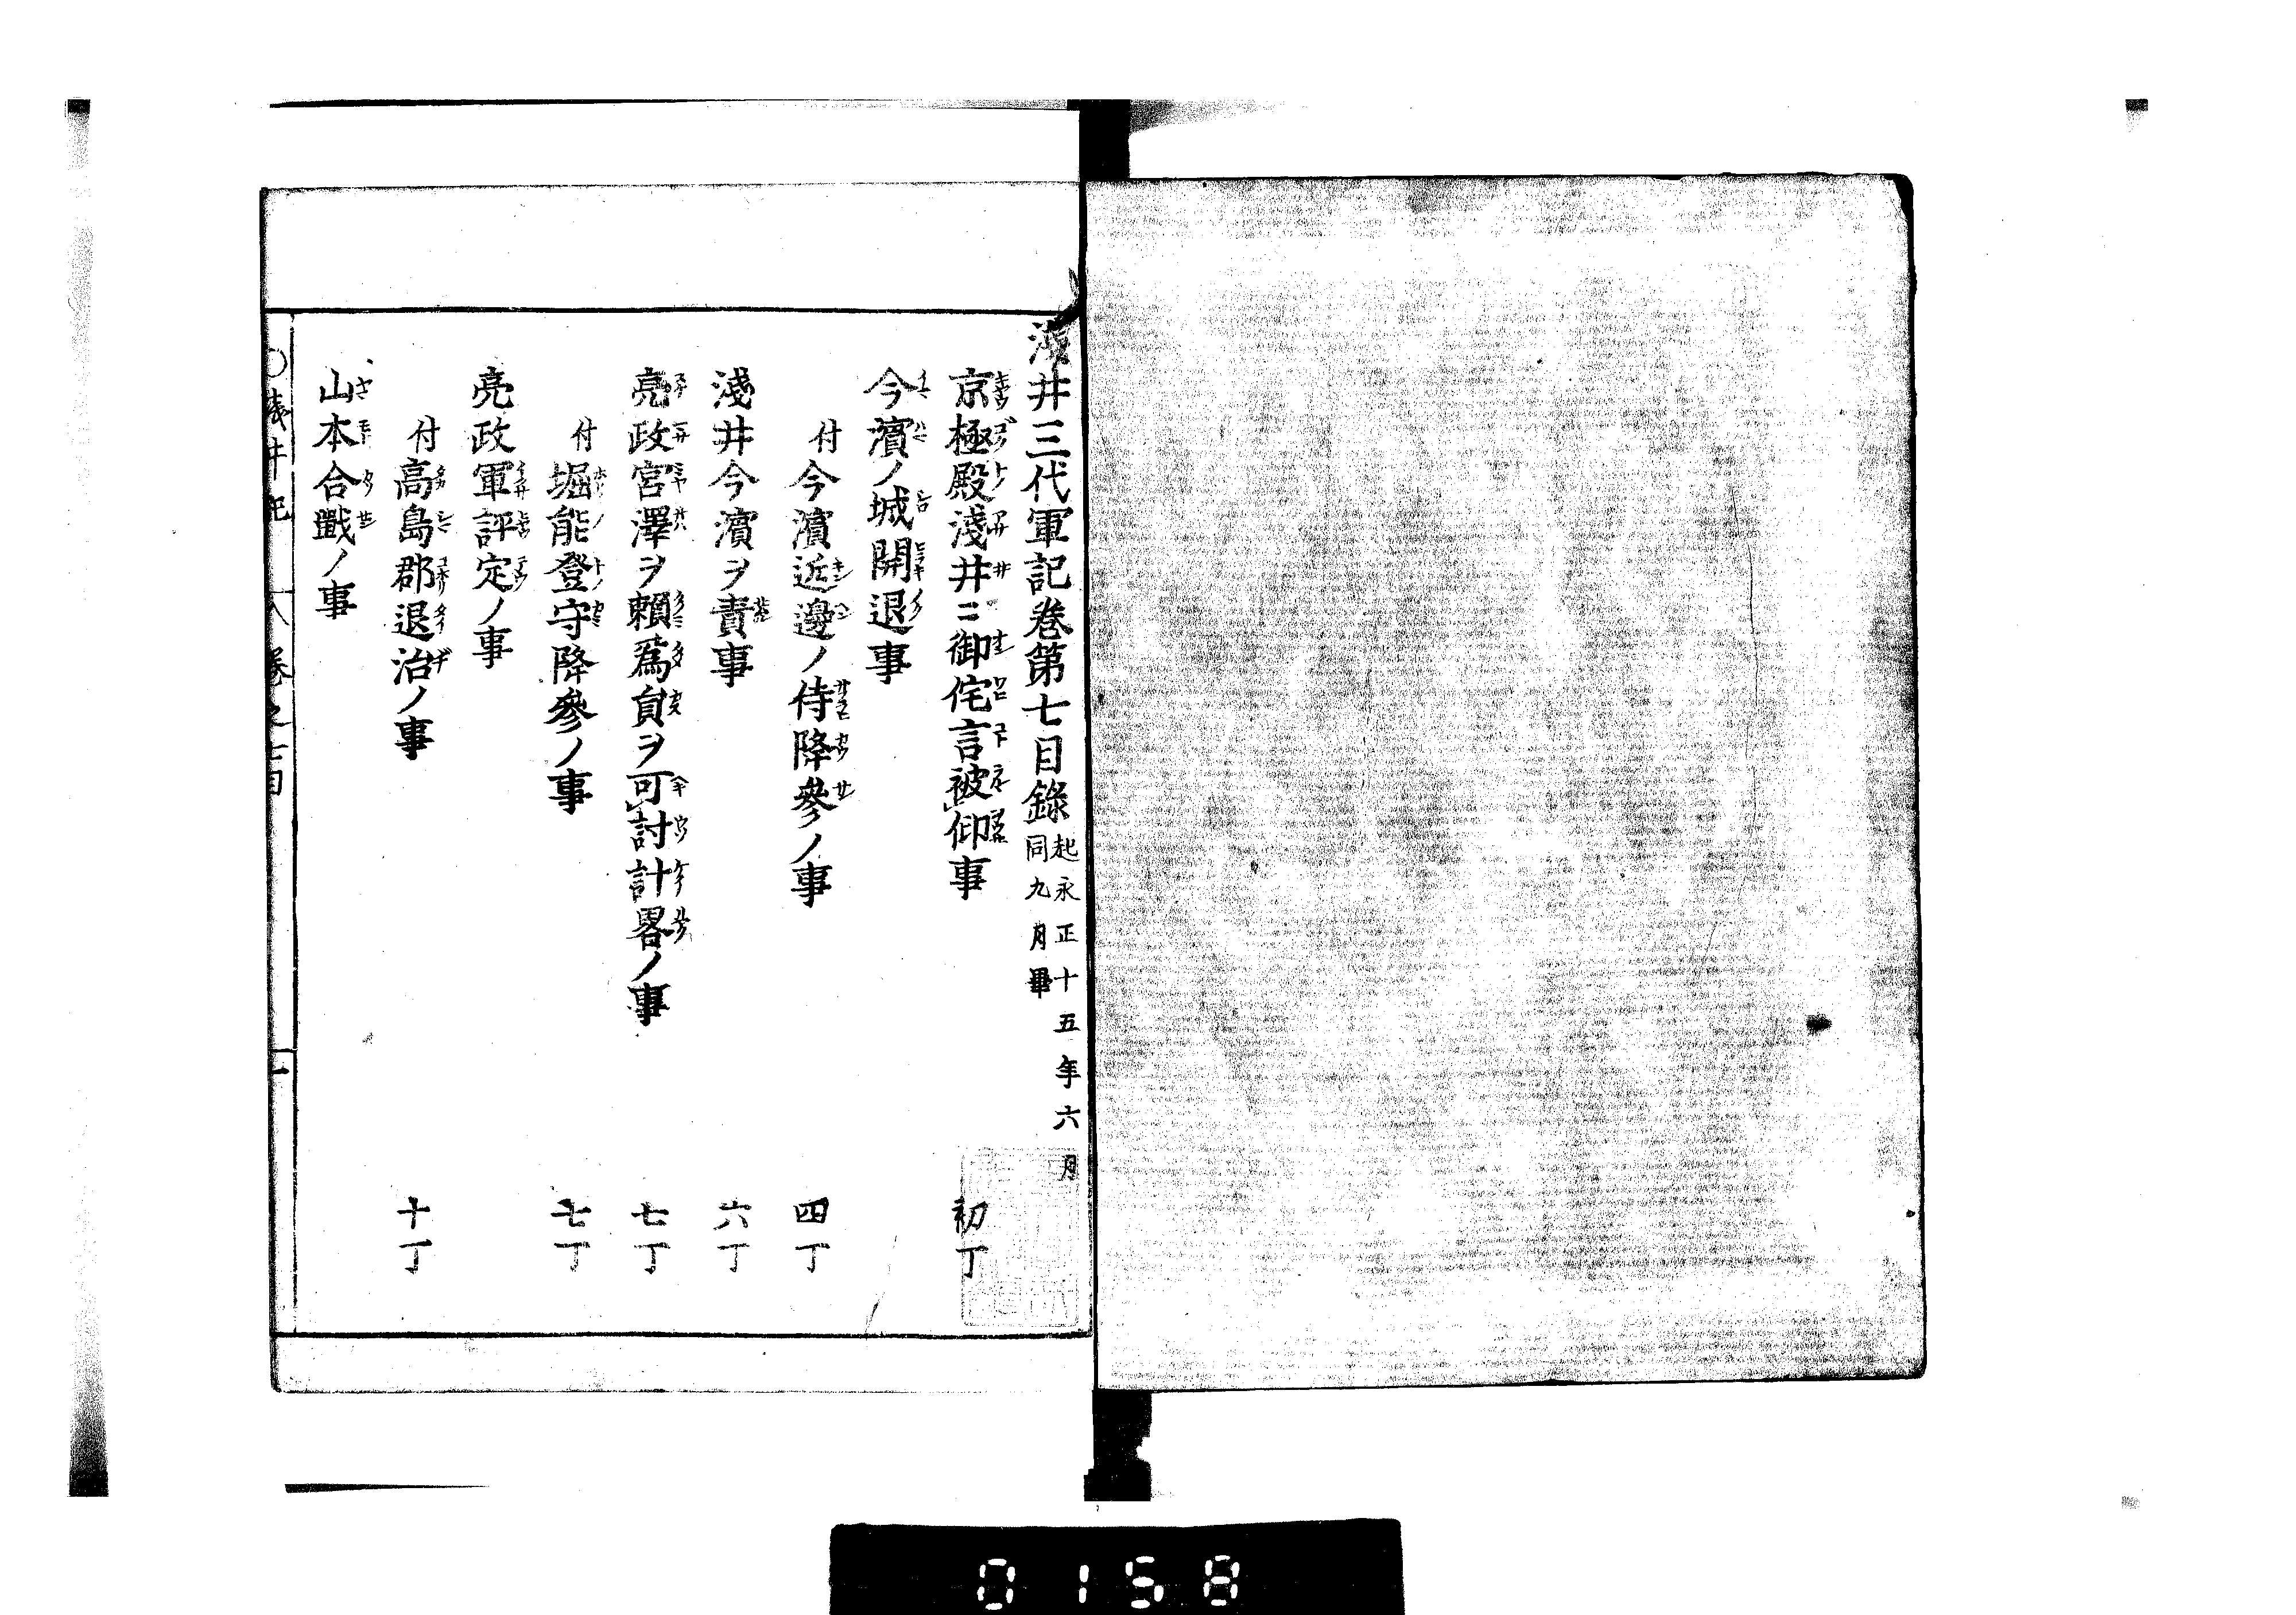 淺井三代軍記卷第七目錄 起永正十五年六月
同九月畢
京極殿淺井ニ御侘言被仰事 初丁
今濵ノ城開退事
付今濵近邊ノ侍降參ノ事 四丁
淺井今濵ヲ責事 六丁
亮政宮澤ヲ賴爲員ヲ可討計畧ノ事 七丁
付堀能登守降參ノ事 七丁
亮政軍評定ノ事
付高島郡退治ノ事 十丁
山本合戰ノ事
淺井記 卷之七目 一
0158